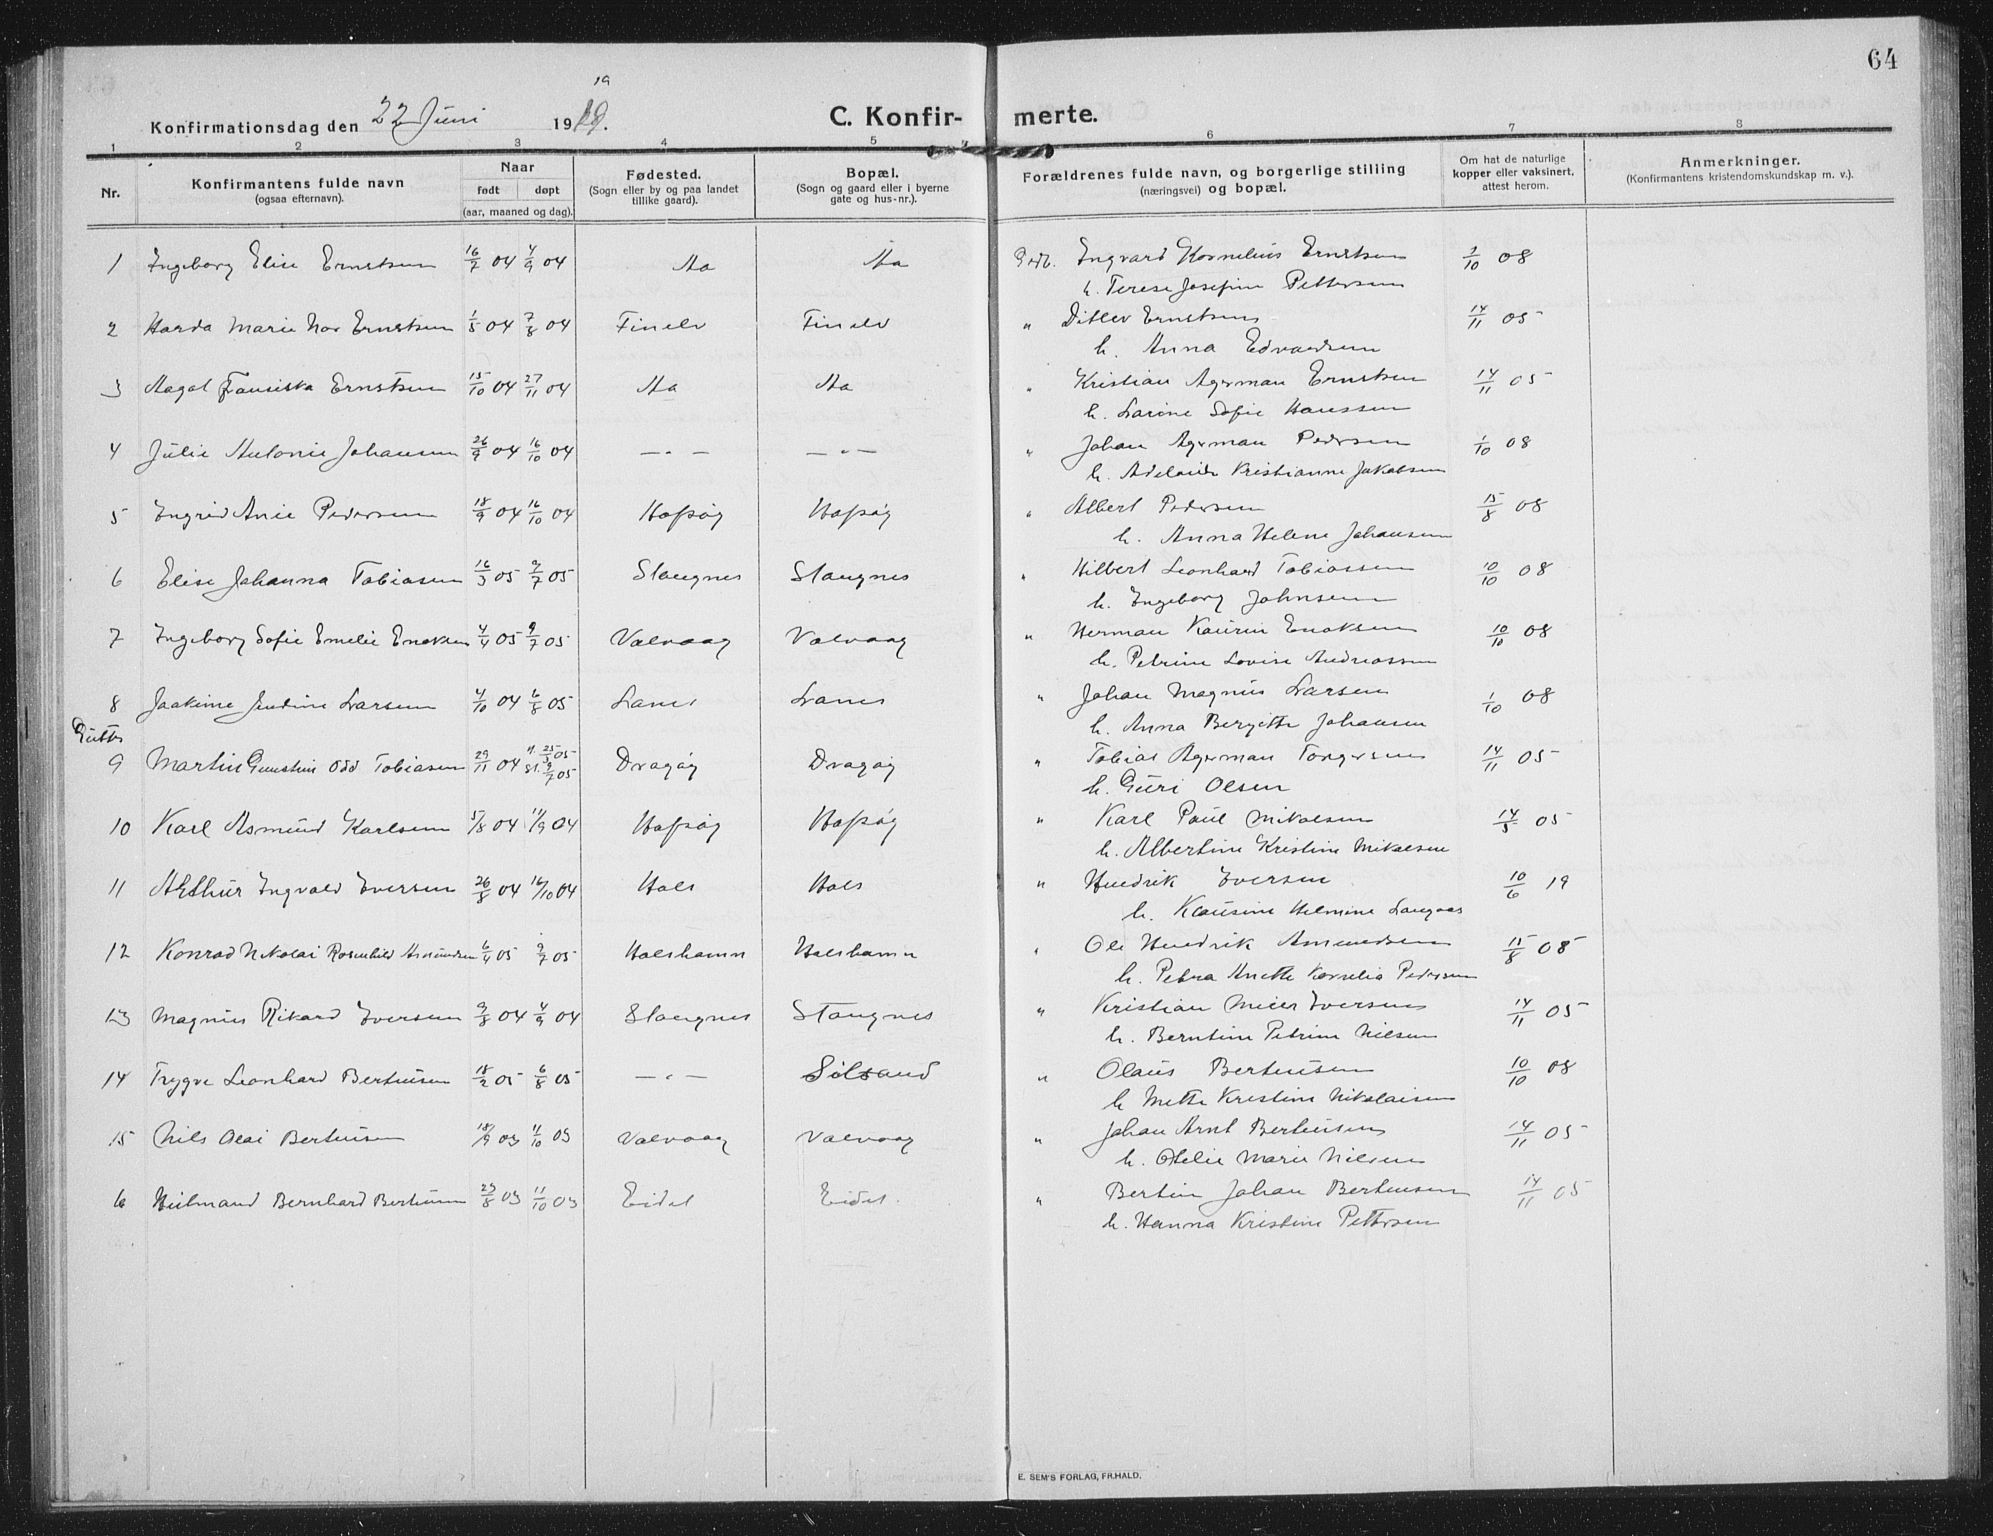 64
19
Konfirmationsdag den 22 Juni 19
C. Konfir- merte.
1 2 3 4 5 6 7 8
Nr.
Konfirmantens fulde navn
(ogsaa efternavn).
Naar
født døpt
(aar, maaned og dag).
Fødested.
(Sogn eller by og paa landet
tillike gaard).
Bopæl.
(Sogn og gaard eller i byerne
gate og hus-nr.).
Forældrenes fulde navn, og borgerlige stilling
(næringsvei) og bopæl.
Om hat de naturlige
kopper eller vaksinert,
attest herom.
Anmerkninger.
(Konfirmantens kristendomskundskap m. v.).
1 Ingeborg Elise Ernstsen 16/7 04 4/9 04 Aa Aa Ingvard Kornelius Ernstsen 1/10 08
h. Terese Josefine Pettersen
2 Harda Marie Nor Ernstsen 1/5 04 7/8 04 Finelv Finelv " Ditlev Ernstsen 14/11 05
h. Anna Edvardsen
3 Aagot Fransiska Ernstsen 15/10 04 27/11 04 Aa Aa " Kristian Agerman Ernstsen 14/11 05
h. Larine Sofie Hanssen
4 Julie Antonie Johansen 26/9 04 16/10 04 — " — — " — " Johan Agerman Pedersen 1/10 08
h. Adelaide Kristianne Jakobsen
5 Ingrid Anie Pedersen 18/9 04 16/10 04 Hofsøy Hofsøy " Albert Pedersen 15/8 08
h. Anna Helene Johansen
6 Elise Johanna Tobiasen 16/3 05 9/7 05 Stangnes Stangnes " Hilbert Leonhard Tobiassen 10/10 08
h. Ingeborg Johnsen
7 Ingeborg Sofie Emelie Enoksen 4/4 05 9/7 05 Valvaag Valvaag " Herman Kaurin Enoksen 10/10 08
h. Petrine Lovise Andreassen
8 Joakime Jendine Larsen 4/10 04 6/8 05 Lanes Lanes " Johan Magnus Larsen 1/10 08
h. Anna Bergitte Johansen
Gutter
9 Martin Gunstein Odd Tobiasen 29/11 04 25/3 05 Dragøy Dragøy " Tobias Agerman Torgersen 14/11 05
9/7 05
h. Guri Olsen
10 Karl Asmund Karlsen 5/8 04 11/9 04 Hofsøy Hofsøy " Karl Paul Mikalsen 14/5 05
h. Albertine Kristine Mikalsen
11 Arthur Ingvald Iversen 26/8 04 16/10 04 Hals Hals " Hendrik Iversen 10/6 19
h. Klausine Helmine Langaas
12 Konrad Nikolai Rosenhild Asmundsen 6/4 05 9/7 05 Halshamn Halshamn " Ole Hendrik Asmundsen 15/8 08
h. Petra Anette Kornelia Pedersen
13 Magnus Rikard Iversen 9/8 04 4/9 04 Stangnes Stangnes " Kristian Meier Iversen 14/11 05
h. Berntine Petrine Nilsen
14 Trygve Leonhard Berteusen 18/2 05 6/8 05 — " — Silsand " Olaus Berteusen 10/10 08
h Mette Kristine Nikolaisen
15 Nils Olai Berteusen 18/9 03 11/10 03 Valvaag Valvaag " Johan Arnt Berteusen 14/11 05
h. Otelie Marie Nilsen
6 Heilmand Bernhard Berteusen 23/8 03 11/10 03 Eidet Eidet. " Bertin Johan Berteusen 14/11 05
h. Hanna Kristine Pettersen
E. SEM'S FORLAG, FR.HALD.